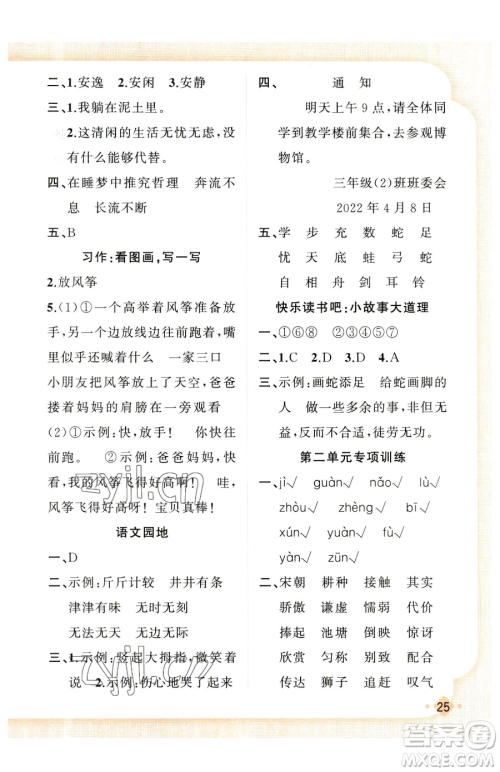 二、1.安逸　2.安闲　3.安静
三、1.我躺在泥土里。
2.这清闲的生活无忧无虑，没
有什么能够代替。
四、在睡梦中推究哲理　奔流不
息　长流不断
五、B
习作：看图画，写一写
2.放风筝
5.(1)①一个高举着风筝准备放
手，另一个边放线边往前跑着，嘴
里似乎还在喊着什么　一家三口
小朋友把风筝放上了天空，爸爸
搂着妈妈的肩膀在一旁观看
(2)①示例：快，放手！　你快往
前跑。　②示例：爸爸妈妈，快
看，我的风筝飞得好高啊！　哇，
风筝飞得好高啊！宝贝真棒！
语文园地
一、D
二、示例：斤斤计较　井井有条
津津有味　无时无刻
无法无天　无边无际
三、1.示例：竖起大拇指，微笑着
说　2.示例：伤心地哭了起来
四、　　通　知
明天上午9点，请全体同
学到教学楼前集合，去参观博
物馆。
三年级(2)班班委会
2022年4月8日
五、学　步　充　数　蛇　足
忧　天　底　蛙　弓　蛇
自　相　舟　剑　耳　铃
快乐读书吧：小故事大道理
一、①⑥⑧　②③④⑤⑦
二、1.C　2.D　3.D　4.A
三、示例：画蛇添足　给蛇画脚的
人　　做了多余的事，非但无
益，反而不合适，徒劳无功。
第二单元专项训练
一、jì√　guàn√　nǎo√　lù√
zhòu√　zhèng√　bì√
xún√　yuán√　yú√
yàn√　zūn√
二、宋朝　耕种　接触　其实
骄傲　谦虚　懦弱　代价
捧起　池塘　倒映　惊讶
欣赏　匀称　别致　配合
传达　狮子　追赶　叹气
25
zyjl.cn
zyjl.cn
答案圈
MXQE.COM